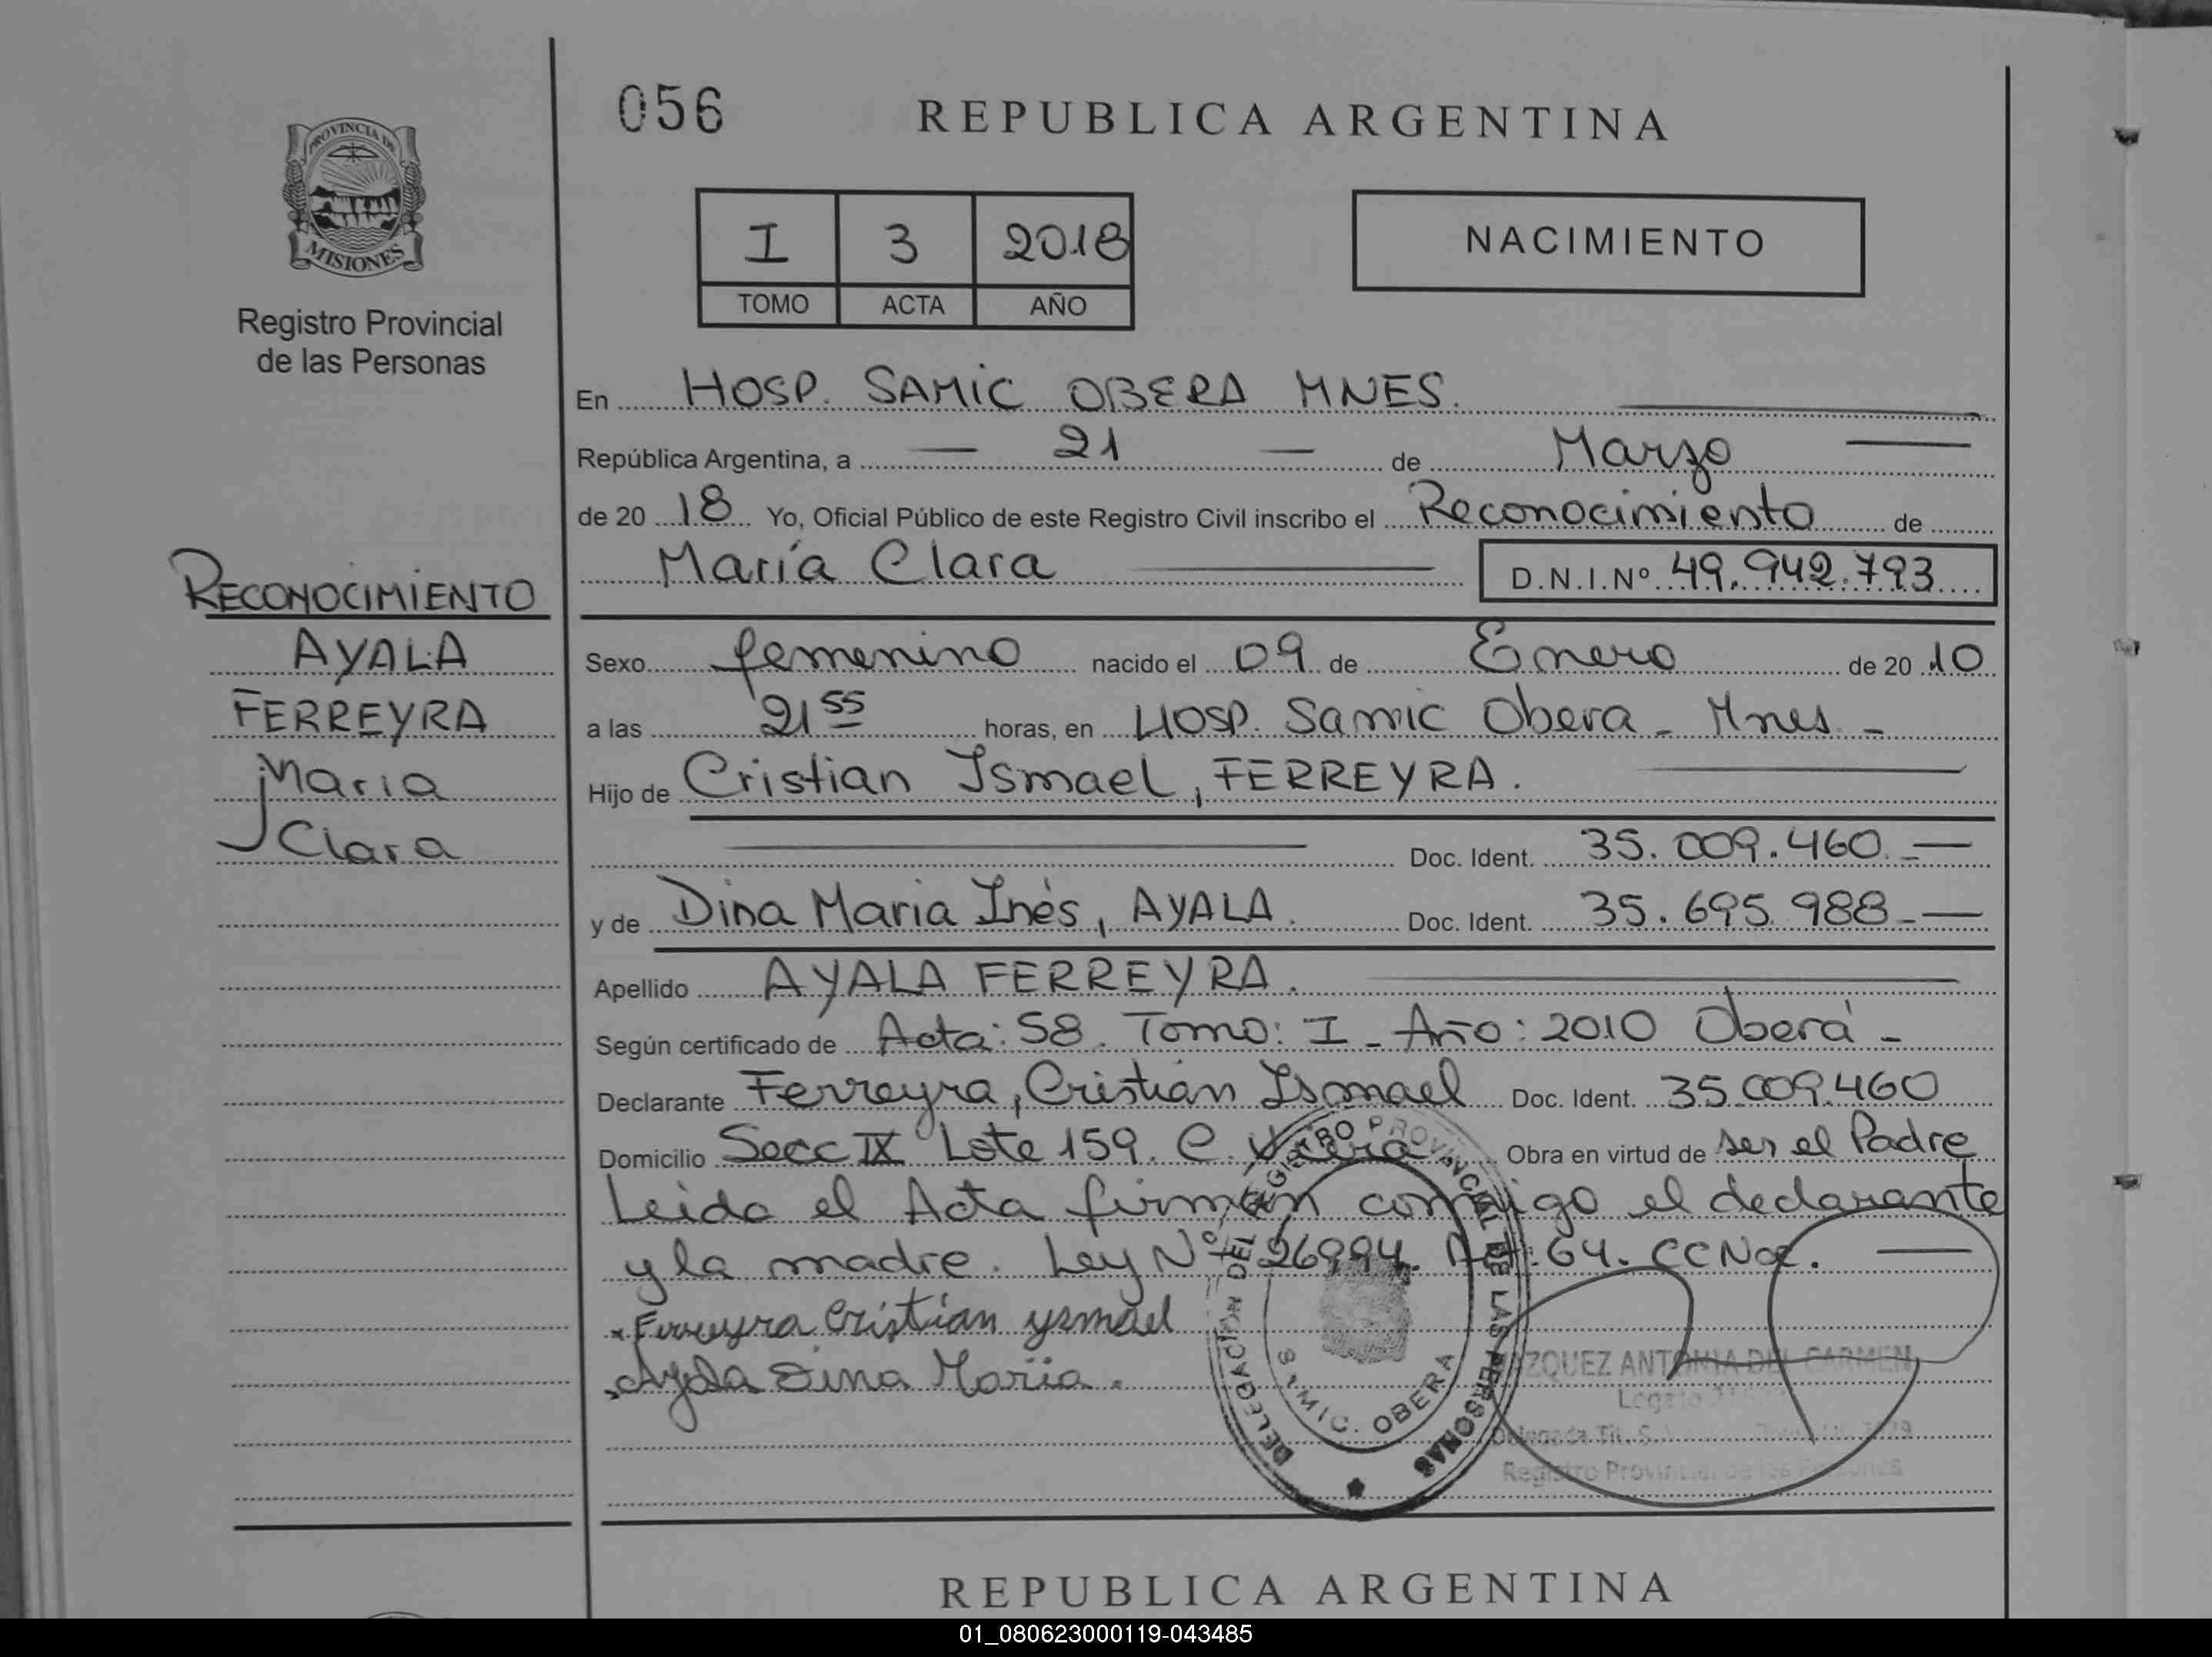 056
REPUBLICA ARGENTINA
PROVINCIA DE
MISIONES
Registro Provincial
de las Personas
I 3 2018
TOMO ACTA AÑO
NACIMIENTO
En HOSP. SAMIC OBERA MNES.
República Argentina, a — 21 — de Marzo
de 20 18 Yo, Oficial Público de este Registro Civil inscribo el Reconocimiento de
María Clara D.N.I.Nº 49.942.793
RECONOCIMIENTO
AYALA
FERREYRA
Maria
Clara
Sexo femenino nacido el 09 de Enero de 20 10
a las 21 55 horas, en Hosp. Samic Obera - Mnes -
Hijo de Cristian Ismael, FERREYRA.
Doc. Ident. 35.009.460.-
y de Dina Maria Inés, AYALA. Doc. Ident. 35.695.988.-
Apellido AYALA FERREYRA.
Según certificado de Acta: 58. Tomo: I - Año: 2010 Oberá -
Declarante Ferreyra, Cristian Ismael Doc. Ident. 35.009.460
Domicilio Secc IX Lote 159. C. Obra en virtud de ser el Padre
Leida el Acta firman conmigo el declarante
y la madre. Ley Nº 26994. Art: 64. CCNac.
Ferreyra Cristian ysmael
Ayala Dina Maria.
DELEGACIÓN DEL REGISTRO PROVINCIAL DE LAS PERSONAS
OBERA
ANTONIA DEL CARMEN
Registro Provincial de las Personas
REPUBLICA ARGENTINA
01_080623000119-043485